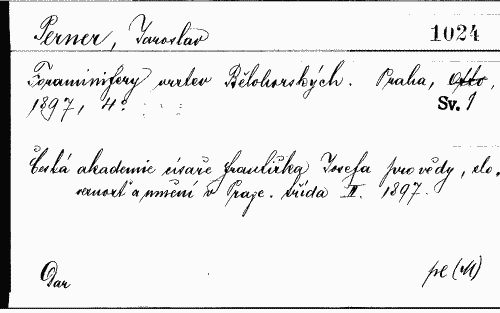 Perner, Jaroslav 1024
Foraminifery vrstev Bělohorských. Praha, Otto,
1897, 4°. Sv. 1
Česká akademie císaře Františka Josefa pro vědy, slo-
vesnost a umění v Praze. třída II. 1897.
Dar